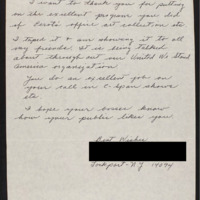 I want to thank you for putting
on the excellent program you did
of Perot's office art collection etc
I taped it & am showing it to all
my friends. It is being talked
about through out our United We Stand
America organization
You do an excellent job on
your call in C-Span shows
etc
I hope your bosses know
how your public likes you
Best Wishes
Lockport - N.Y 14094